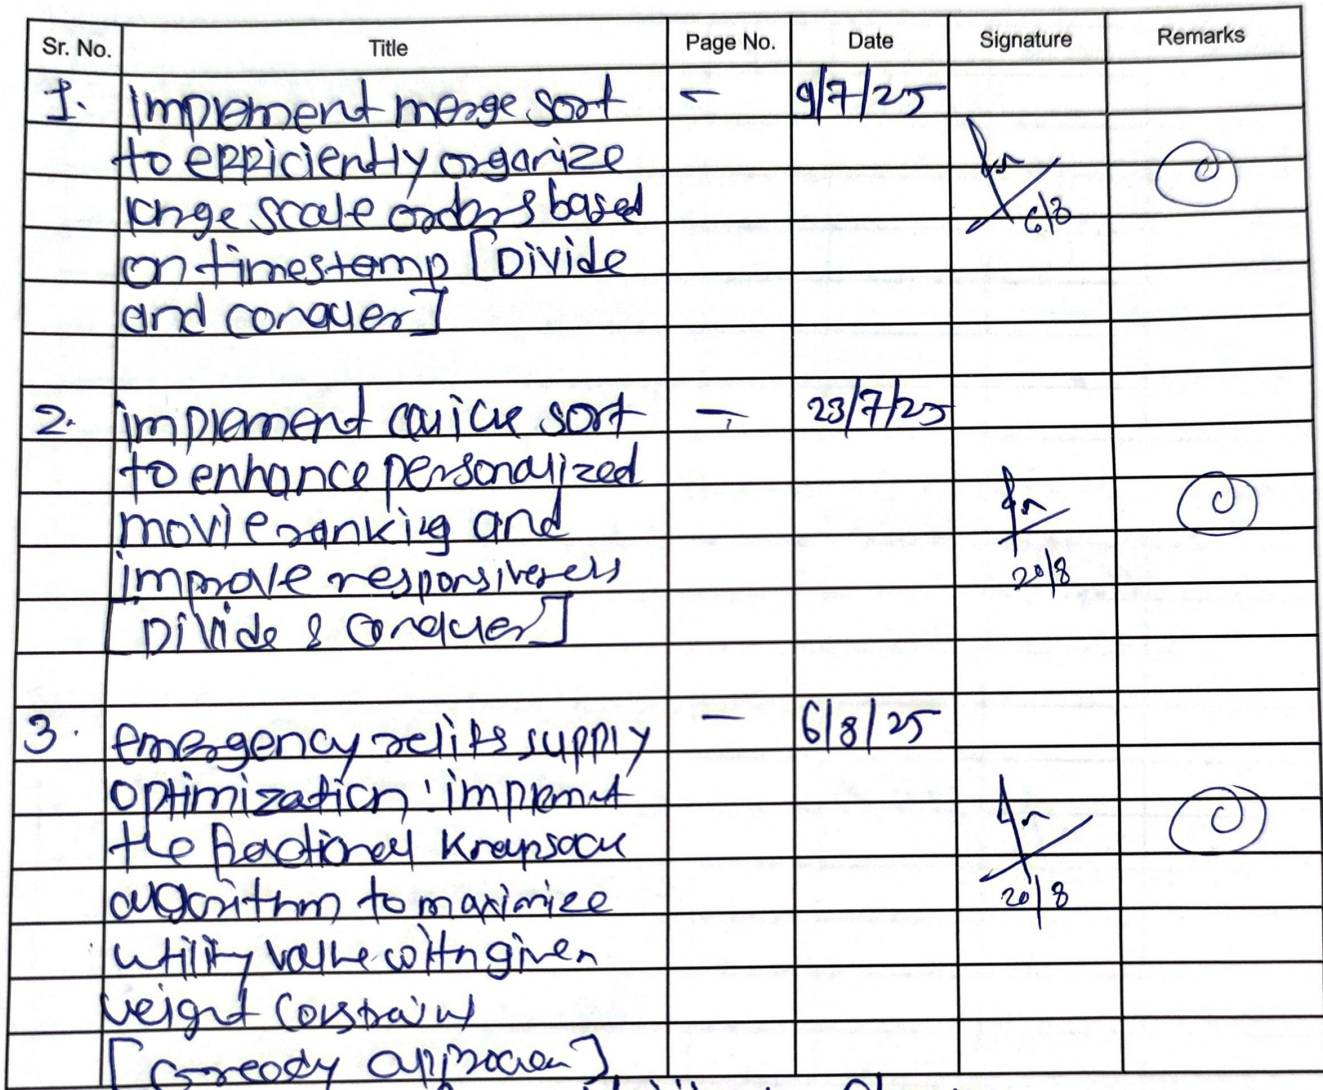 Sr. No. Title Page No. Date Signature Remarks
1. Implement merge sort — 9/7/25
to efficiently organize
large scale orders based
6/8
on timestamp [Divide
and conquer]
2. implement quick sort — 23/7/25
to enhance personalized
movie ranking and
improve responsiveness
20/8
[Divide & Conquer]
3. emergency reliefs supply — 6/8/25
optimization: implement
the fractional Knapsack
algorithm to maximize
20/8
utility value with given
weight constraint
[Greedy approach]